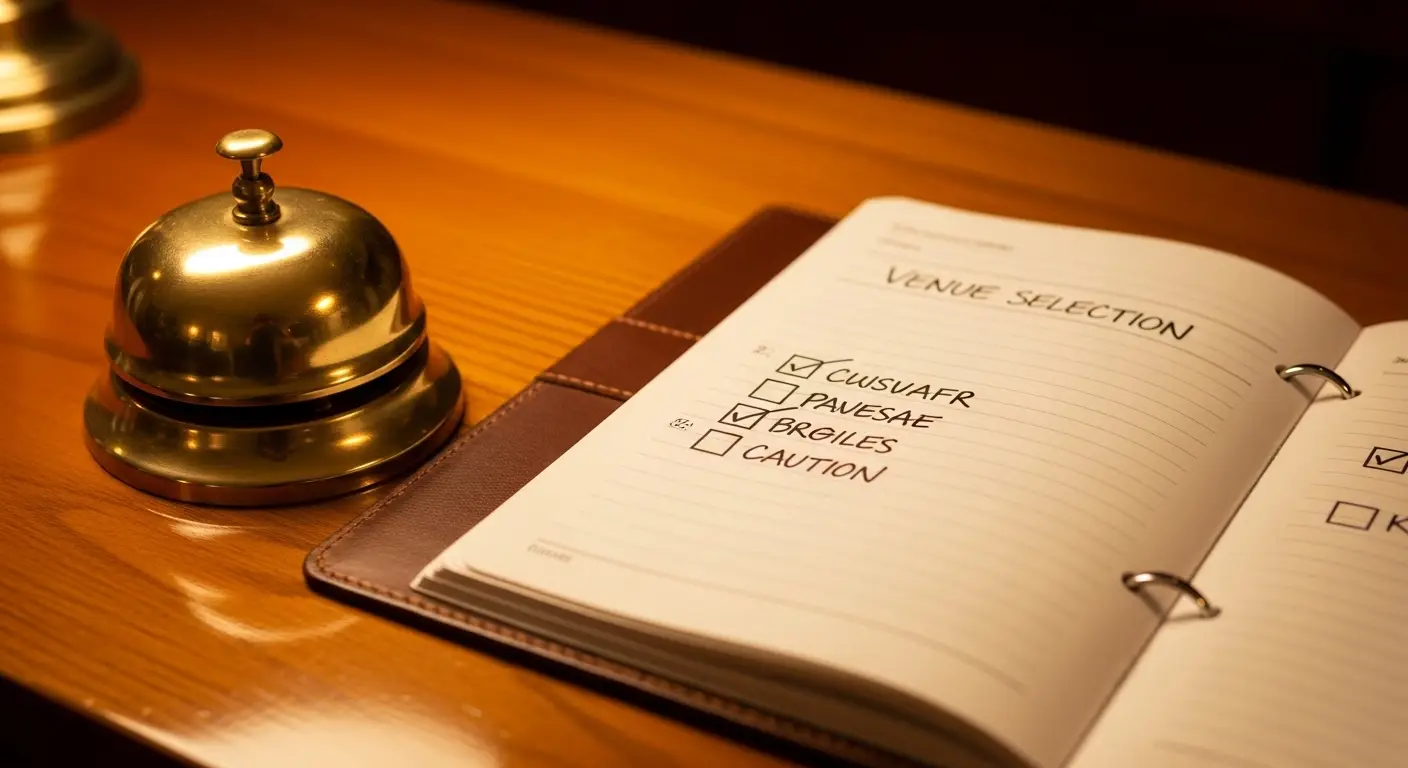 VENUE SELECTION
CWSUAFR
PAVESAE
BRGILES
CAUTION
K